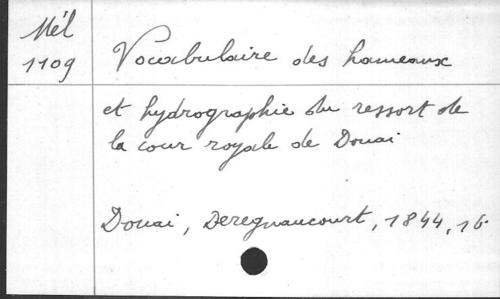 Mél
1109
Vocabulaire des hameaux
et hydrographie du ressort de
la cour royale de Douai
Douai, Deregnaucourt, 1844, 16.